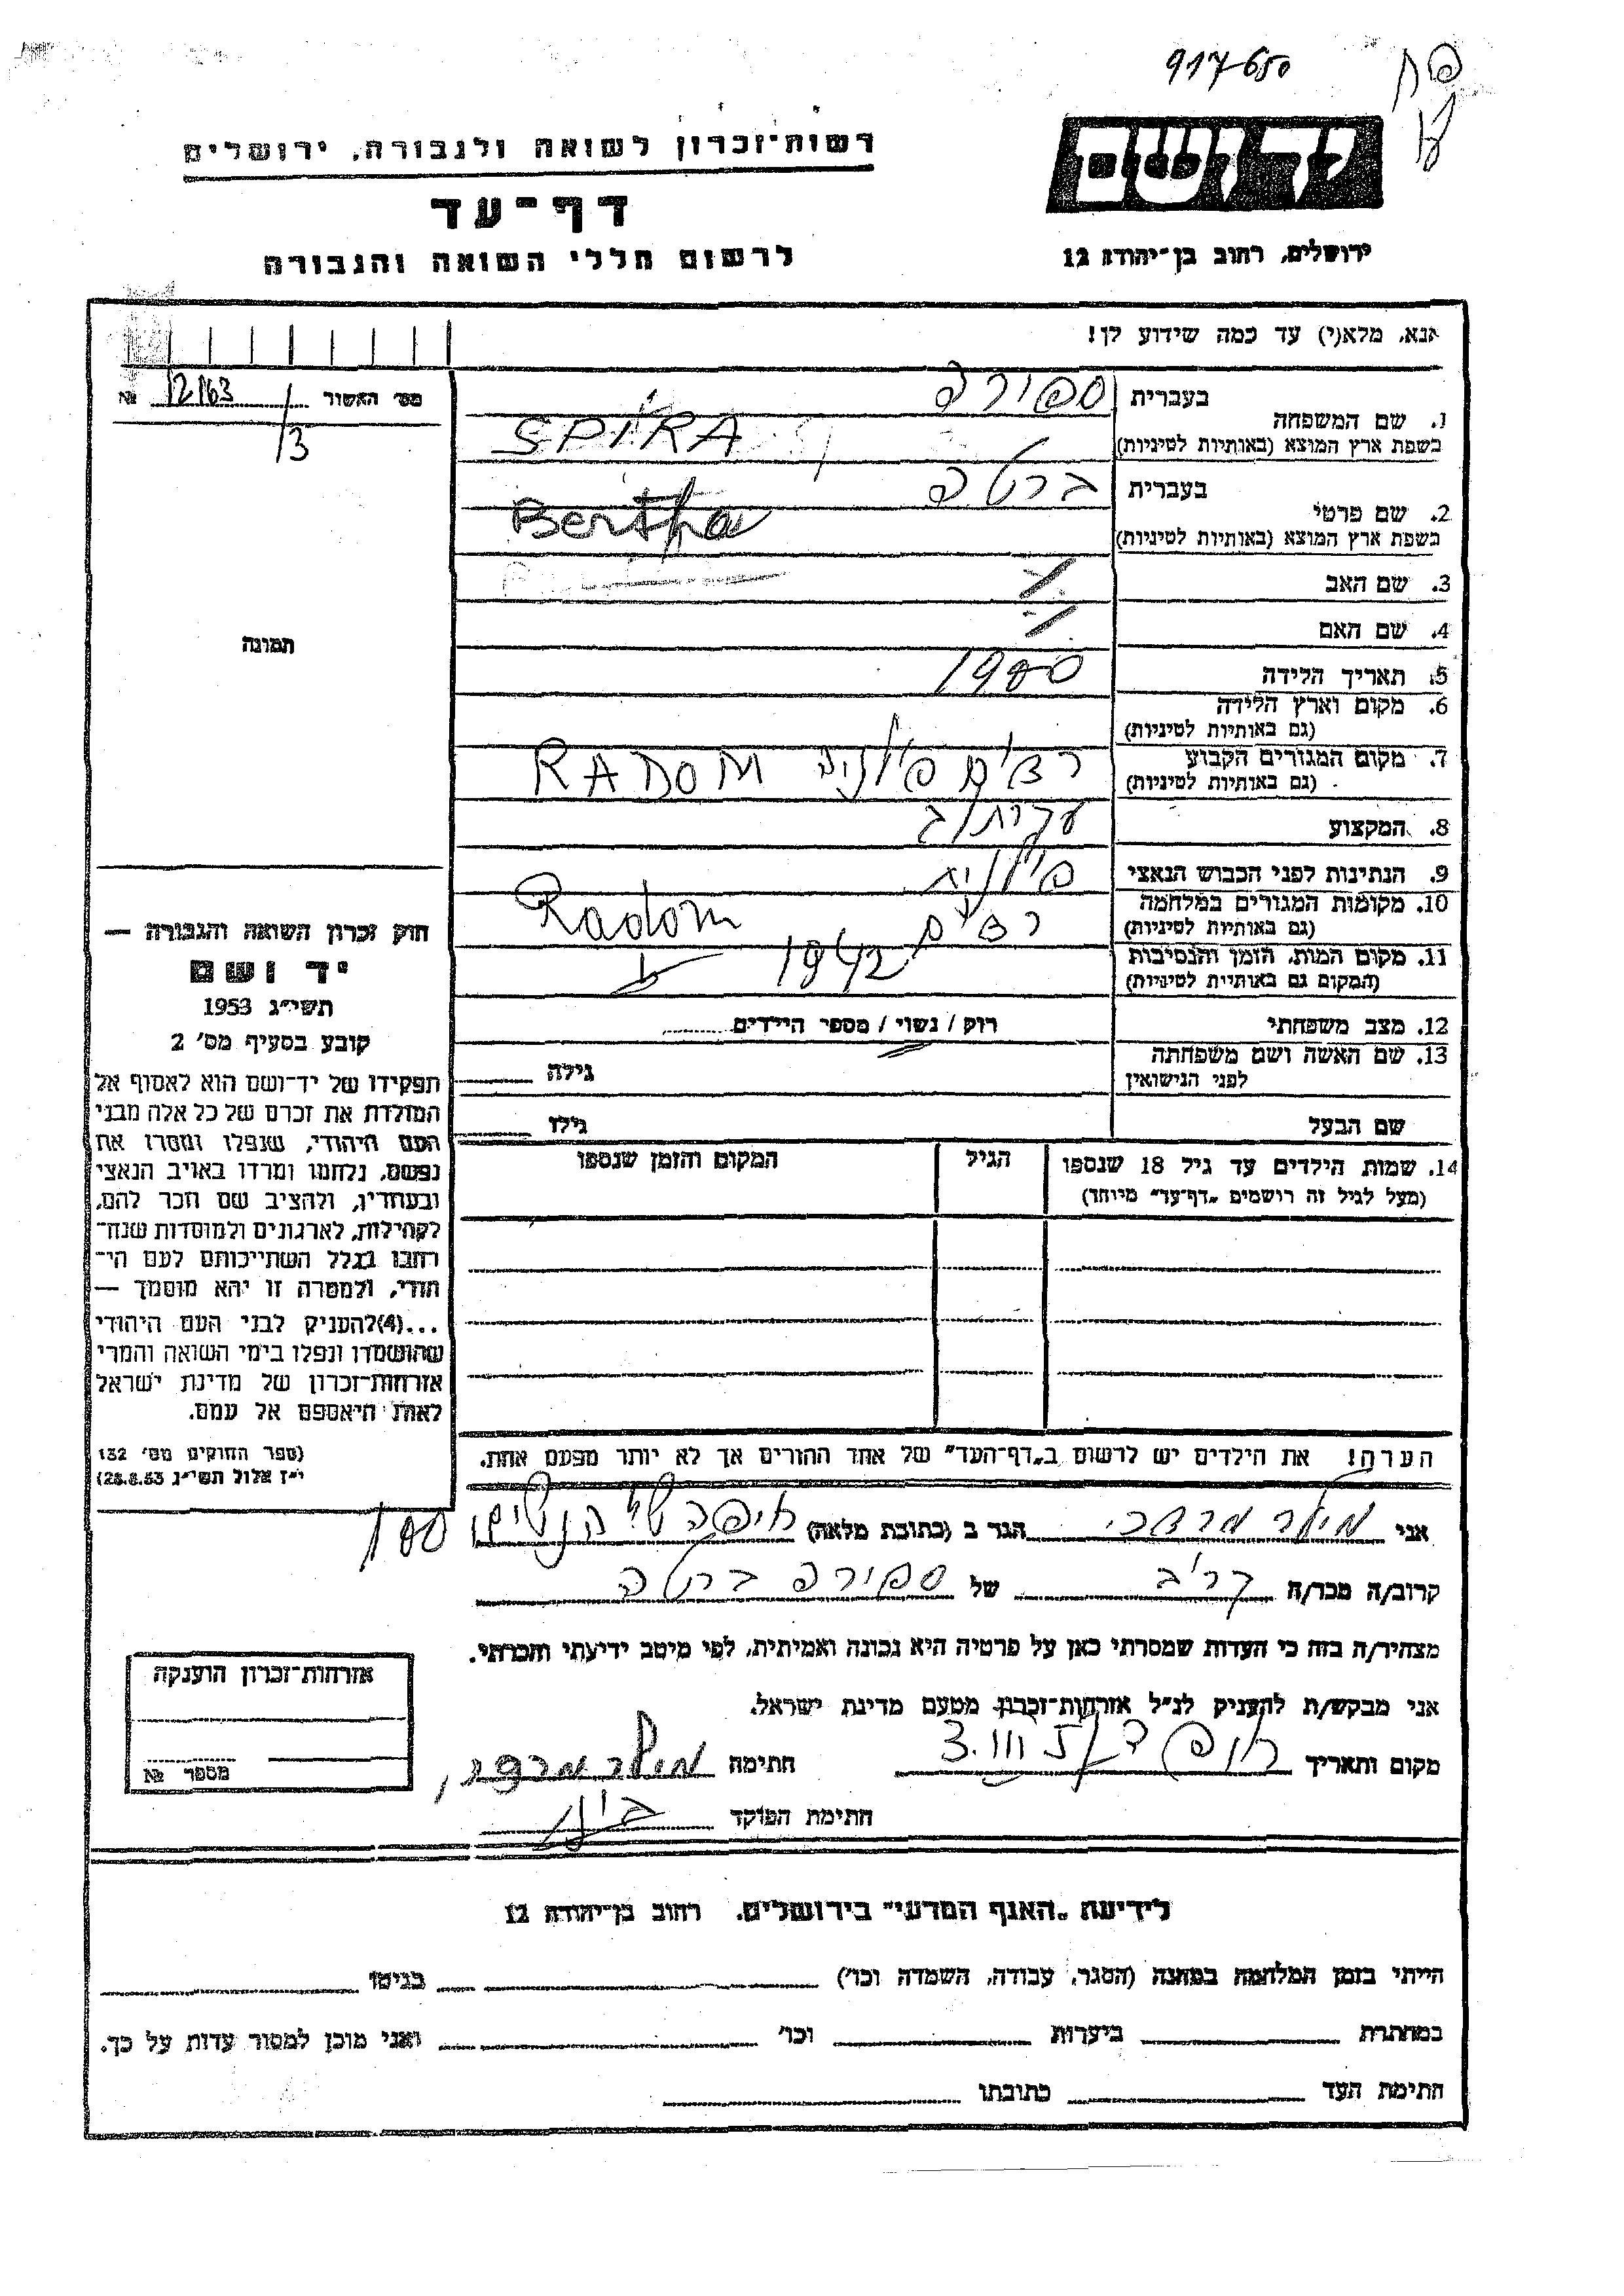 917650
פח
רשות־זכרון לשואה ולגבורה, ירושלים
יד ושם
דף־עד
לרשום חללי השואה והגבורה
ירושלים, רחוב בן־יהודה 12
אנא, מלא(י) עד כמה שידוע לך!
מס׳ האשור 12163 №
/3
תמונה
1. שם המשפחה בעברית ספירה
בשפת ארץ המוצא (באותיות לטיניות) SPIRA
2. שם פרטי בעברית ברטה
בשפת ארץ המוצא (באותיות לטיניות) Bertha
3. שם האב
4. שם האם
5. תאריך הלידה 1900
6. מקום וארץ הלידה
(גם באותיות לטיניות)
7. מקום המגורים הקבוע רדום פולניה RADOM
(גם באותיות לטיניות)
8. המקצוע
9. הנתינות לפני הכבוש הנאצי פולנית
10. מקומות המגורים במלחמה רדום Radom
(גם באותיות לטיניות)
11. מקום המות, הזמן והנסיבות 1942
(המקום גם באותיות לטיניות)
12. מצב משפחתי רוק / נשוי / מספר הילדים
13. שם האשה ושם משפחתה גילה
לפני הנישואין
שם הבעל גילו
14. שמות הילדים עד גיל 18 שנספו הגיל המקום והזמן שנספו
(מעל לגיל זה רושמים „דף־עד״ מיוחד)
הערה! את הילדים יש לרשום ב„דף־העד״ של אחד ההורים אך לא יותר מפעם אחת.
חוק זכרון השואה והגבורה —
יד ושם
תשי״ג 1953
קובע בסעיף מס׳ 2
תפקידו של יד־ושם הוא לאסוף אל
המולדת את זכרם של כל אלה מבני
העם היהודי, שנפלו ומסרו את
נפשם, נלחמו ומרדו באויב הנאצי
ובעוזריו, ולהציב שם וזכר להם,
לקהילות, לארגונים ולמוסדות שנח־
רבו בגלל השתייכותם לעם הי־
הודי, ולמטרה זו יהא מוסמך —
...(4)להעניק לבני העם היהודי
שהושמדו ונפלו בימי השואה והמרי
אזרחות־זכרון של מדינת ישראל
לאות היאספם אל עמם.
(ספר החוקים מס׳ 132
י״ז אלול תשי״ג 28.8.53)
אני מילר מרדכי הגר ב (כתובת מלאה) חיפה
קרוב/ה מכר/ה קרוב של ספירה ברטה
מצהיר/ה בזה כי העדות שמסרתי כאן על פרטיה היא נכונה ואמיתית, לפי מיטב ידיעתי והכרתי.
אני מבקש/ת להעניק לנ״ל אזרחות־זכרון מטעם מדינת ישראל.
מקום ותאריך חתימה מילר מרדכי
חתימת הפוקד
אזרחות־זכרון הוענקה
מספר №
לידיעת „האגף המדעי״ בירושלים, רחוב בן־יהודה 12
הייתי בזמן המלחמה במחנה (הסגר, עבודה, השמדה וכו׳) בגיטו
במחתרת ביערות וכו׳ ואני מוכן למסור עדות על כך.
חתימת העד כתובתו